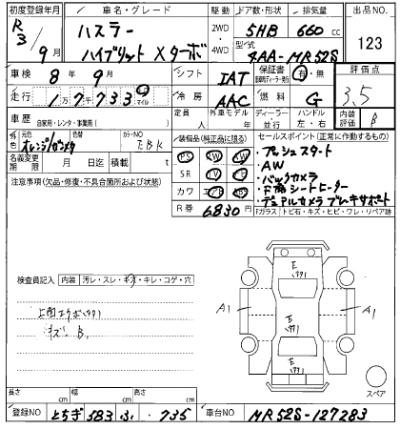 初度登録年月 車名・グレード 駆動 ドア数・形状 排気量 出品NO
R3年9月 ハスラー ハイブリットXターボ 2WD・4WD 5HB 660cc 123
型式 4AA-MR52S
車検 8年9月 シフト IAT 保証書 有・無 評価点
走行 17733 km マイル 冷房 AAC 燃料 G 3.5
車歴 自家用・レンタ・事業用( ) 定員 人 外車モデル 年 ディーラー 並行 ハンドル 左・右 内装評価 B
色 元色 オレンジガンメタ カラーNO
装備品(純正品に限る) セールスポイント(正常に作動するもの)
名義変更期限 月 日迄 積載 t
PS AW PW ・プッシュスタート
SR ・AW
カワ ・バックカメラ
・F席シートヒーター
・デュアルカメラブレーキサポート
R券 6830円
注意事項(欠品・修復・不具合箇所および状態)
Fガラス トビ石・キズ・ヒビ・ワレ・リペア跡
検査員記入 内装 汚レ・スレ・キズ・キレ・コゲ・穴
キズ、B、
A1 E A1
E
スペア
長さ cm 幅 cm 高さ cm
登録NO とちぎ 583 ふ ・735 車台NO MR52S-127283